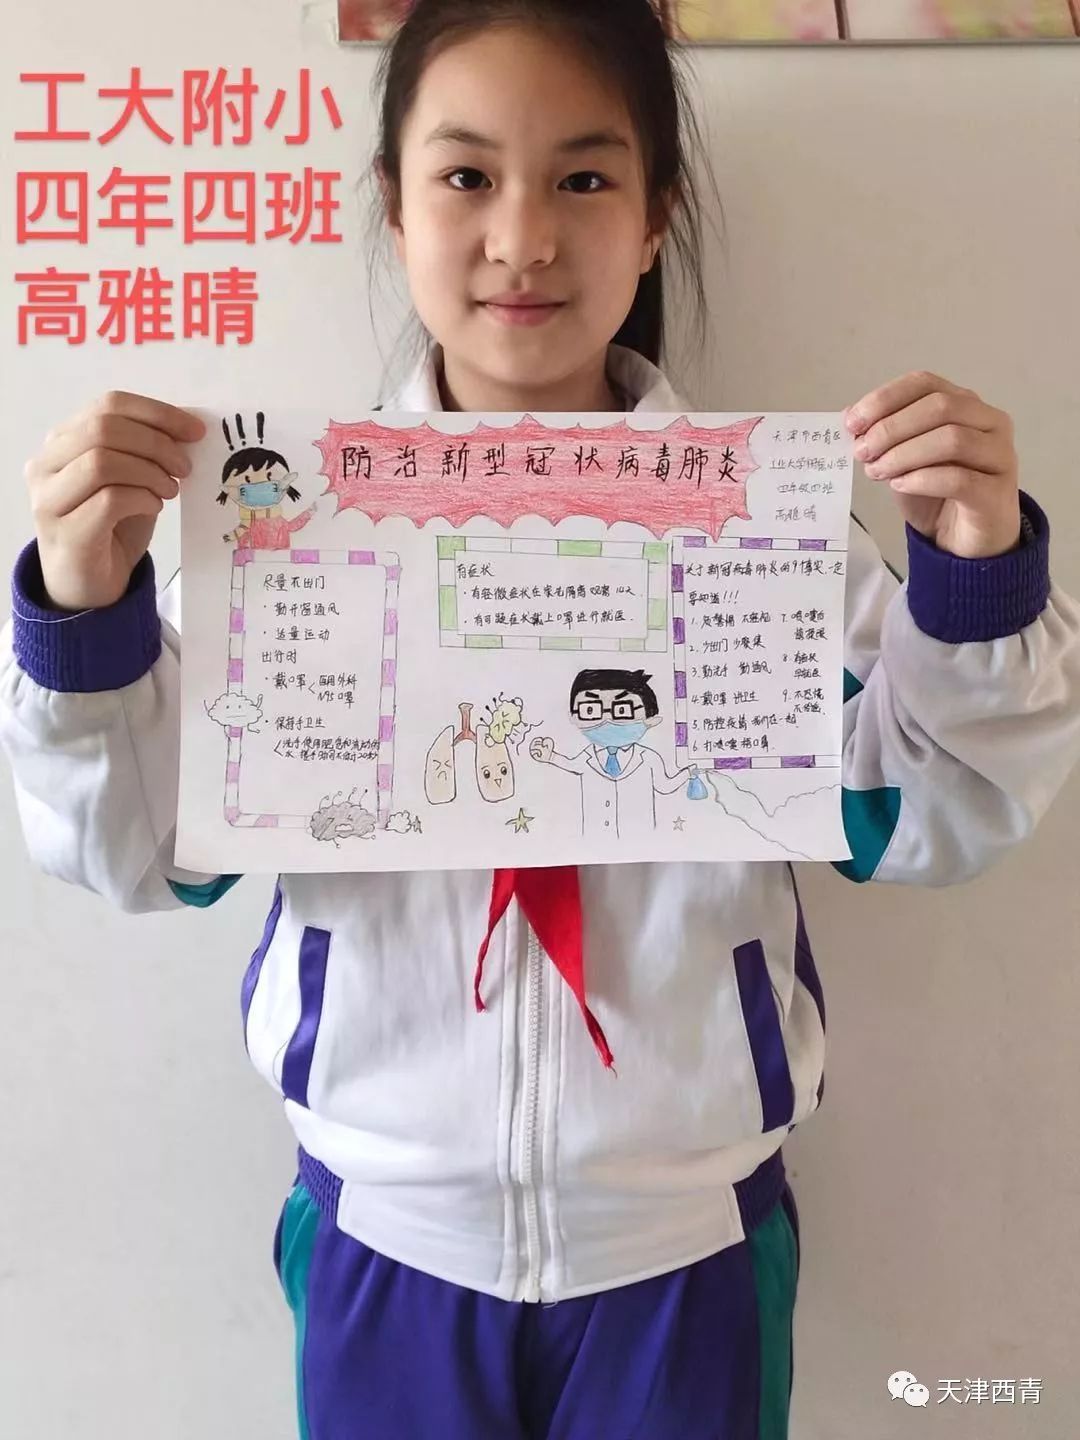 工大附小
四年四班
高雅晴
防治新型冠状病毒肺炎
天津市西青区
工业大学附属小学
四年级四班
高雅晴
尽量不出门
·勤开窗通风
·适量运动
出行时
·戴口罩<医用外科
N95口罩
·保持手卫生
有症状
·有轻微症状在家先隔离观察14天
·有可疑症状戴上口罩进行就医.
关于新冠病毒肺炎的9件事实,一定
要知道!!!
2.少出门 少聚集
3.勤洗手 勤通风
4.戴口罩 讲卫生
5.防控疫情 我们在一起
6.打喷嚏 捂口鼻
8.有症状
早就医
9.不恐慌
天津西青